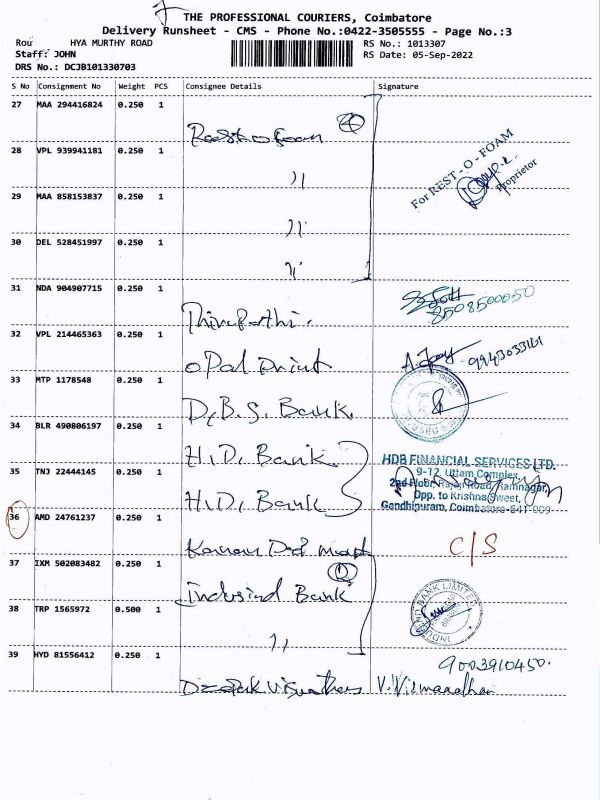 THE PROFESSIONAL COURIERS, Coimbatore
Delivery Runsheet - CMS - Phone No.:0422-3505555 - Page No.:3
Rou HYA MURTHY ROAD RS No.: 1013307
Staff: JOHN RS Date: 05-Sep-2022
DRS No.: DCJB101330703
S No Consignment No Weight PCS Consignee Details Signature
27 MAA 294416824 0.250 1
Rest o foam 4
28 VPL 939941181 0.250 1
For REST-O-FOAM
Proprietor
29 MAA 858153837 0.250 1
30 DEL 528451997 0.250 1
31 NDA 904907715 0.250 1
8508500050
Thiruparthi.
32 VPL 214465363 0.250 1
oPal Print 9943033161
33 MTP 1178548 0.250 1
D.B.S. Bank.
34 BLR 490806197 0.250 1
H.D. Bank
HDB FINANCIAL SERVICES LTD.
35 TNJ 22444145 0.250 1
9-12, Uttam Complex,
2nd Floor, Rajaji Road, Ramnagar,
Opp. to Krishna Sweet,
Gandhipuram, Coimbatore-641 009
H.D. Bank
36 AMD 24761237 0.250 1
C/S
37 IXM 502083482 0.250 1
2
Indusind Bank
38 TRP 1565972 0.500 1
39 HYD 81556412 0.250 1
9003910450.